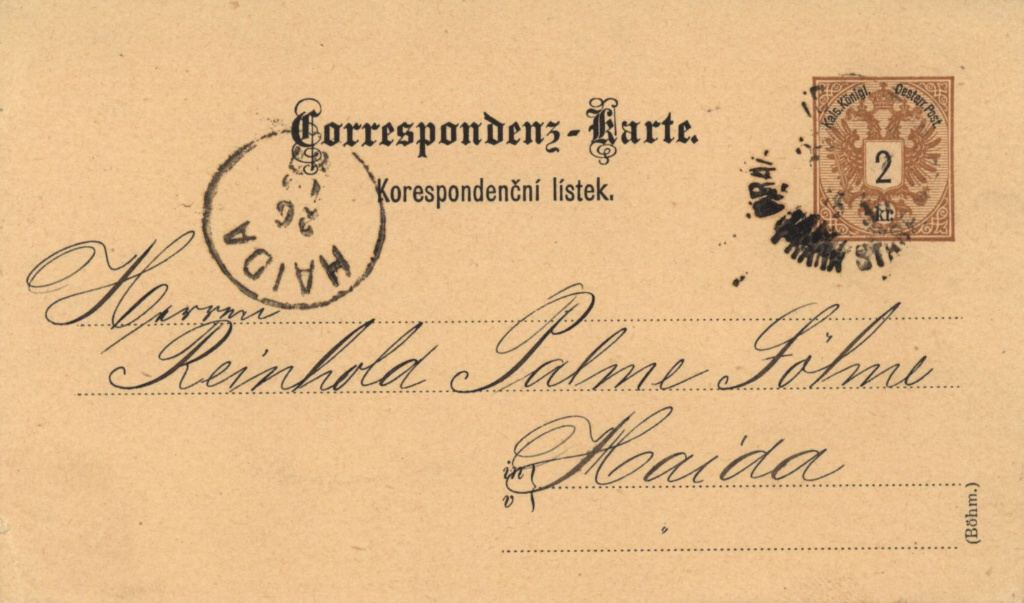 Correspondenz-Karte.
Korespondenční lístek.
Kais. Königl. Oesterr. Post
2
kr.
HAIDA
26
Herren
Reinhold Palme Söhne
in Haida
v
(Böhm.)